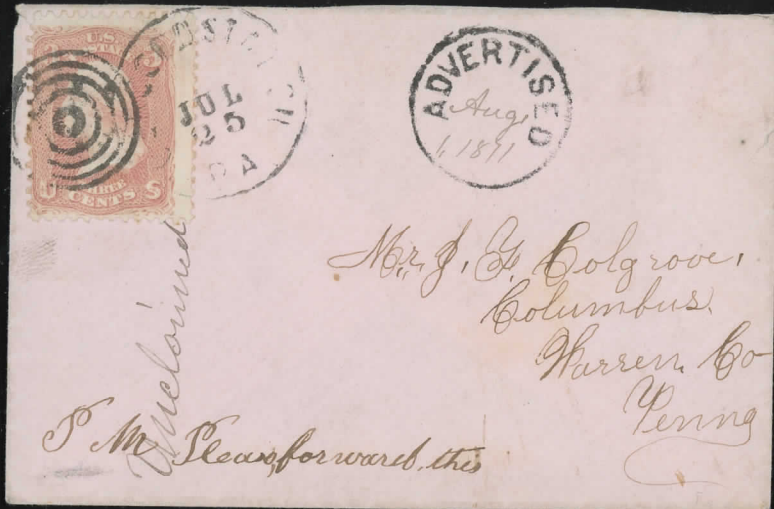 U.S.
POSTAGE
3
THREE
CENTS
U S
JUL
25
PA
ADVERTISED
Aug
1, 1871
Mr. J. F. Colgrove,
Columbus.
Warren, Co
Penna
Unclaimed
P M Please, forward, this